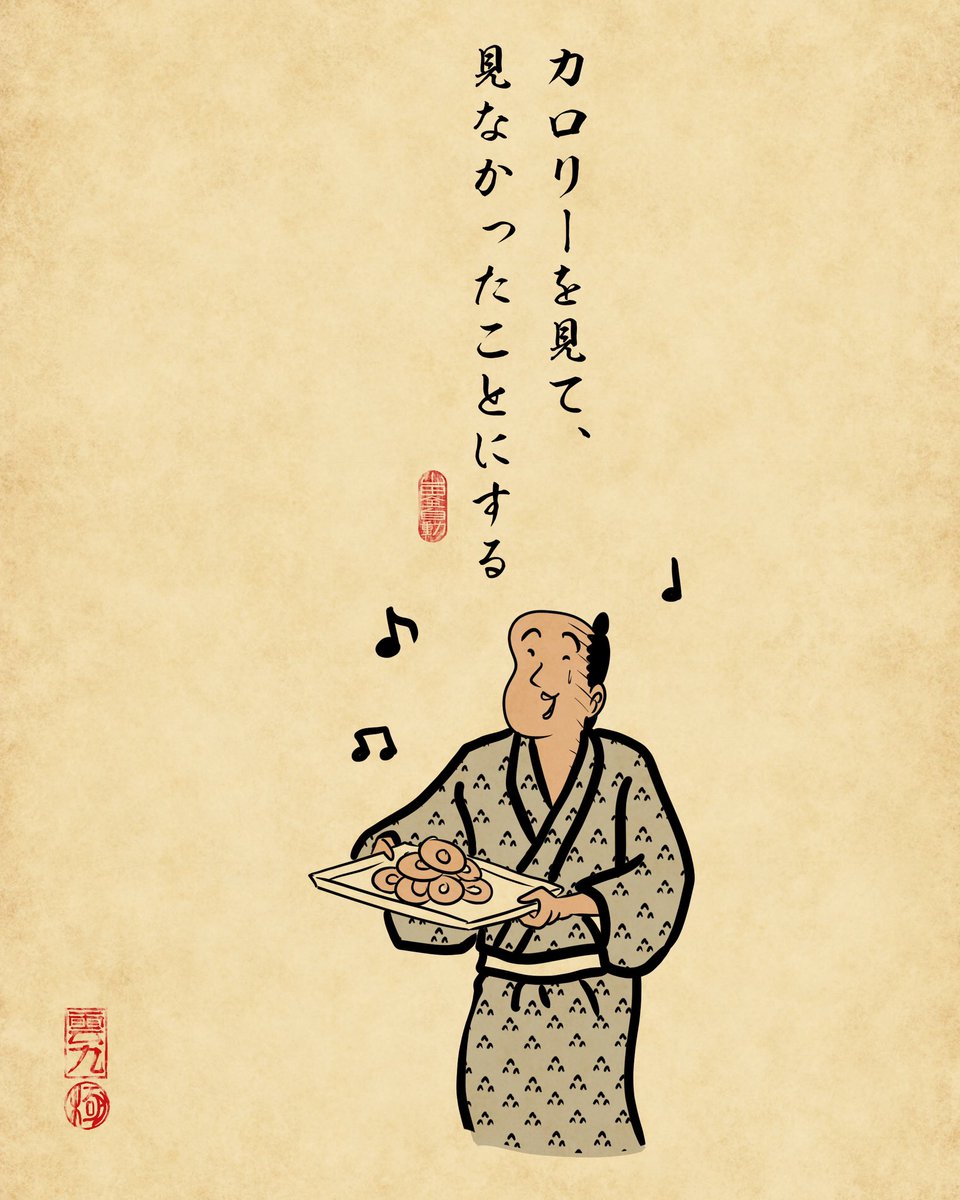 カロリーを見て、
見なかったことにする